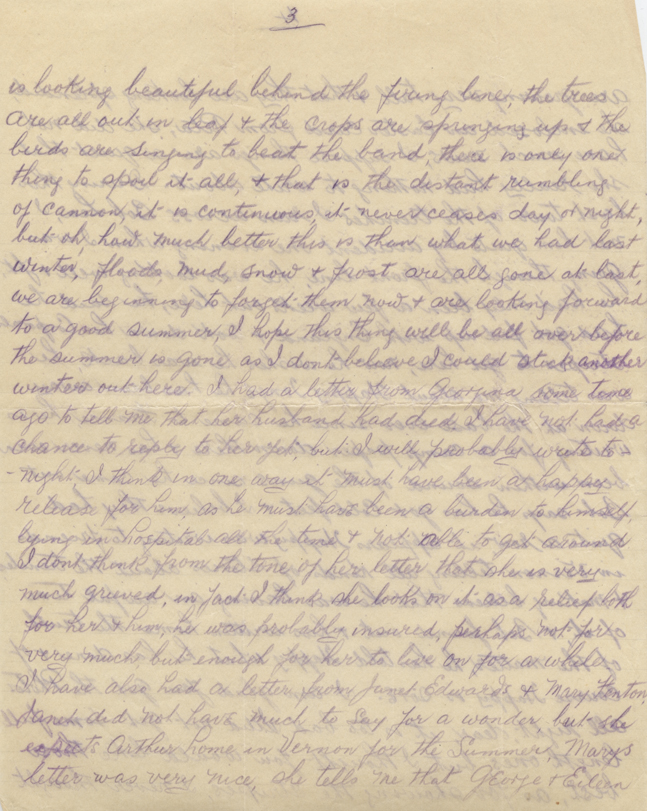 3
is looking beautiful behind the firing line, the trees
are all out in leaf & the crops are springing up & the
birds are singing to beat the band, there is only one
thing to spoil it all, & that is the distant rumbling
of cannon, it is continuous, it never ceases day or night,
but oh, how much better this is than what we had last
winter, floods, mud, snow & frost are all gone at last,
we are beginning to forget them now & are looking forward
to a good summer, I hope this thing will be all over before
the summer is gone as I dont believe I could stick another
winter out here. I had a letter from Georgina some time
ago to tell me that her husband had died. I have not had a
chance to reply to her yet, but I will probably write to-
-night I think in one way it must have been a happy
release for him, as he must have been a burden to himself
lying in hospital all the time & not able to get around
I dont think from the tone of her letter that she is very
much grieved, in fact I think she looks on it as a relief both
for her & him, he was probably insured, perhaps not for
very much, but enough for her to live on for a while
I have also had a letter from Janet Edwards & Mary Fenton,
Janet did not have much to say for a wonder, but she
expects Arthur home in Vernon for the Summer, Marys
letter was very nice, she tells me that George & Eileen